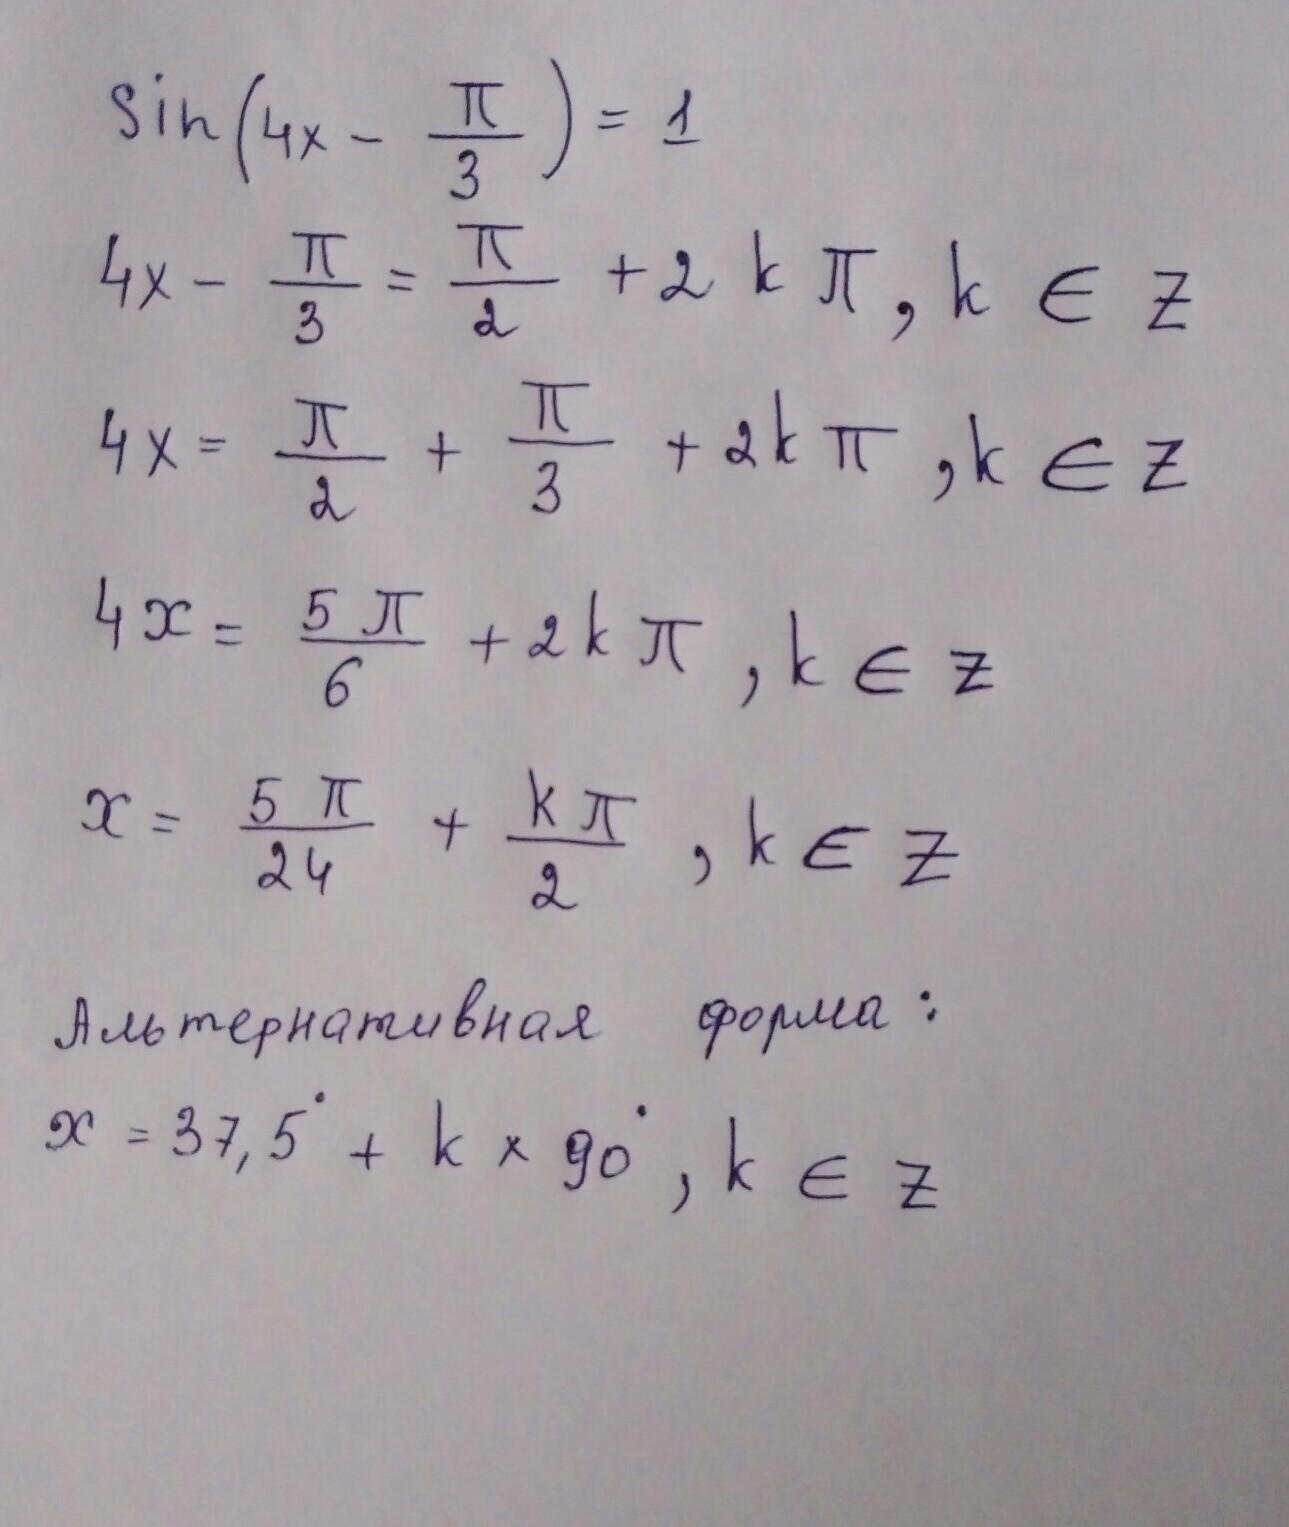 sin(4x - π/3) = 1
4x - π/3 = π/2 + 2kπ, k ∈ Z
4x = π/2 + π/3 + 2kπ, k ∈ Z
4x = 5π/6 + 2kπ, k ∈ Z
x = 5π/24 + kπ/2, k ∈ Z
Альтернативная форма:
x = 37,5° + k × 90°, k ∈ Z